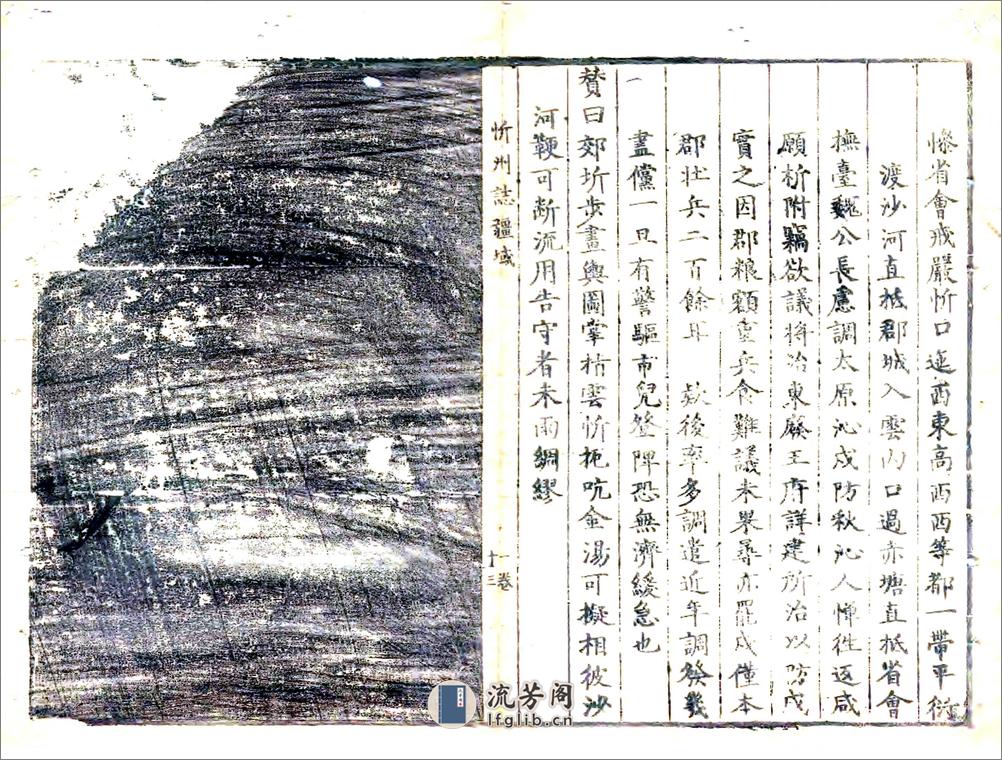 慘省會戒嚴忻口迤西東高西西等都一帶平衍
渡沙河直抵郡城入雲內口過赤塘直抵省會
撫臺魏公長慮調太原沁戍防秋沁人憚徃返咸
願析附竊欲議將治東廢王府詳建所治以防戍
實之因郡粮額重兵食難議未舉尋亦罷戍僅本
郡壮兵二百餘耳 欵後率多調遣近年調發幾
盡儻一旦有警驅市兒登陴恐無濟緩急也
贊曰郊圻步畫輿圖掌枯雲忻扼吭金湯可擬相彼沙
河鞭可断流用告守者未雨綢繆
忻州誌疆域
一卷
十三
流芳阁
lfglib.cn